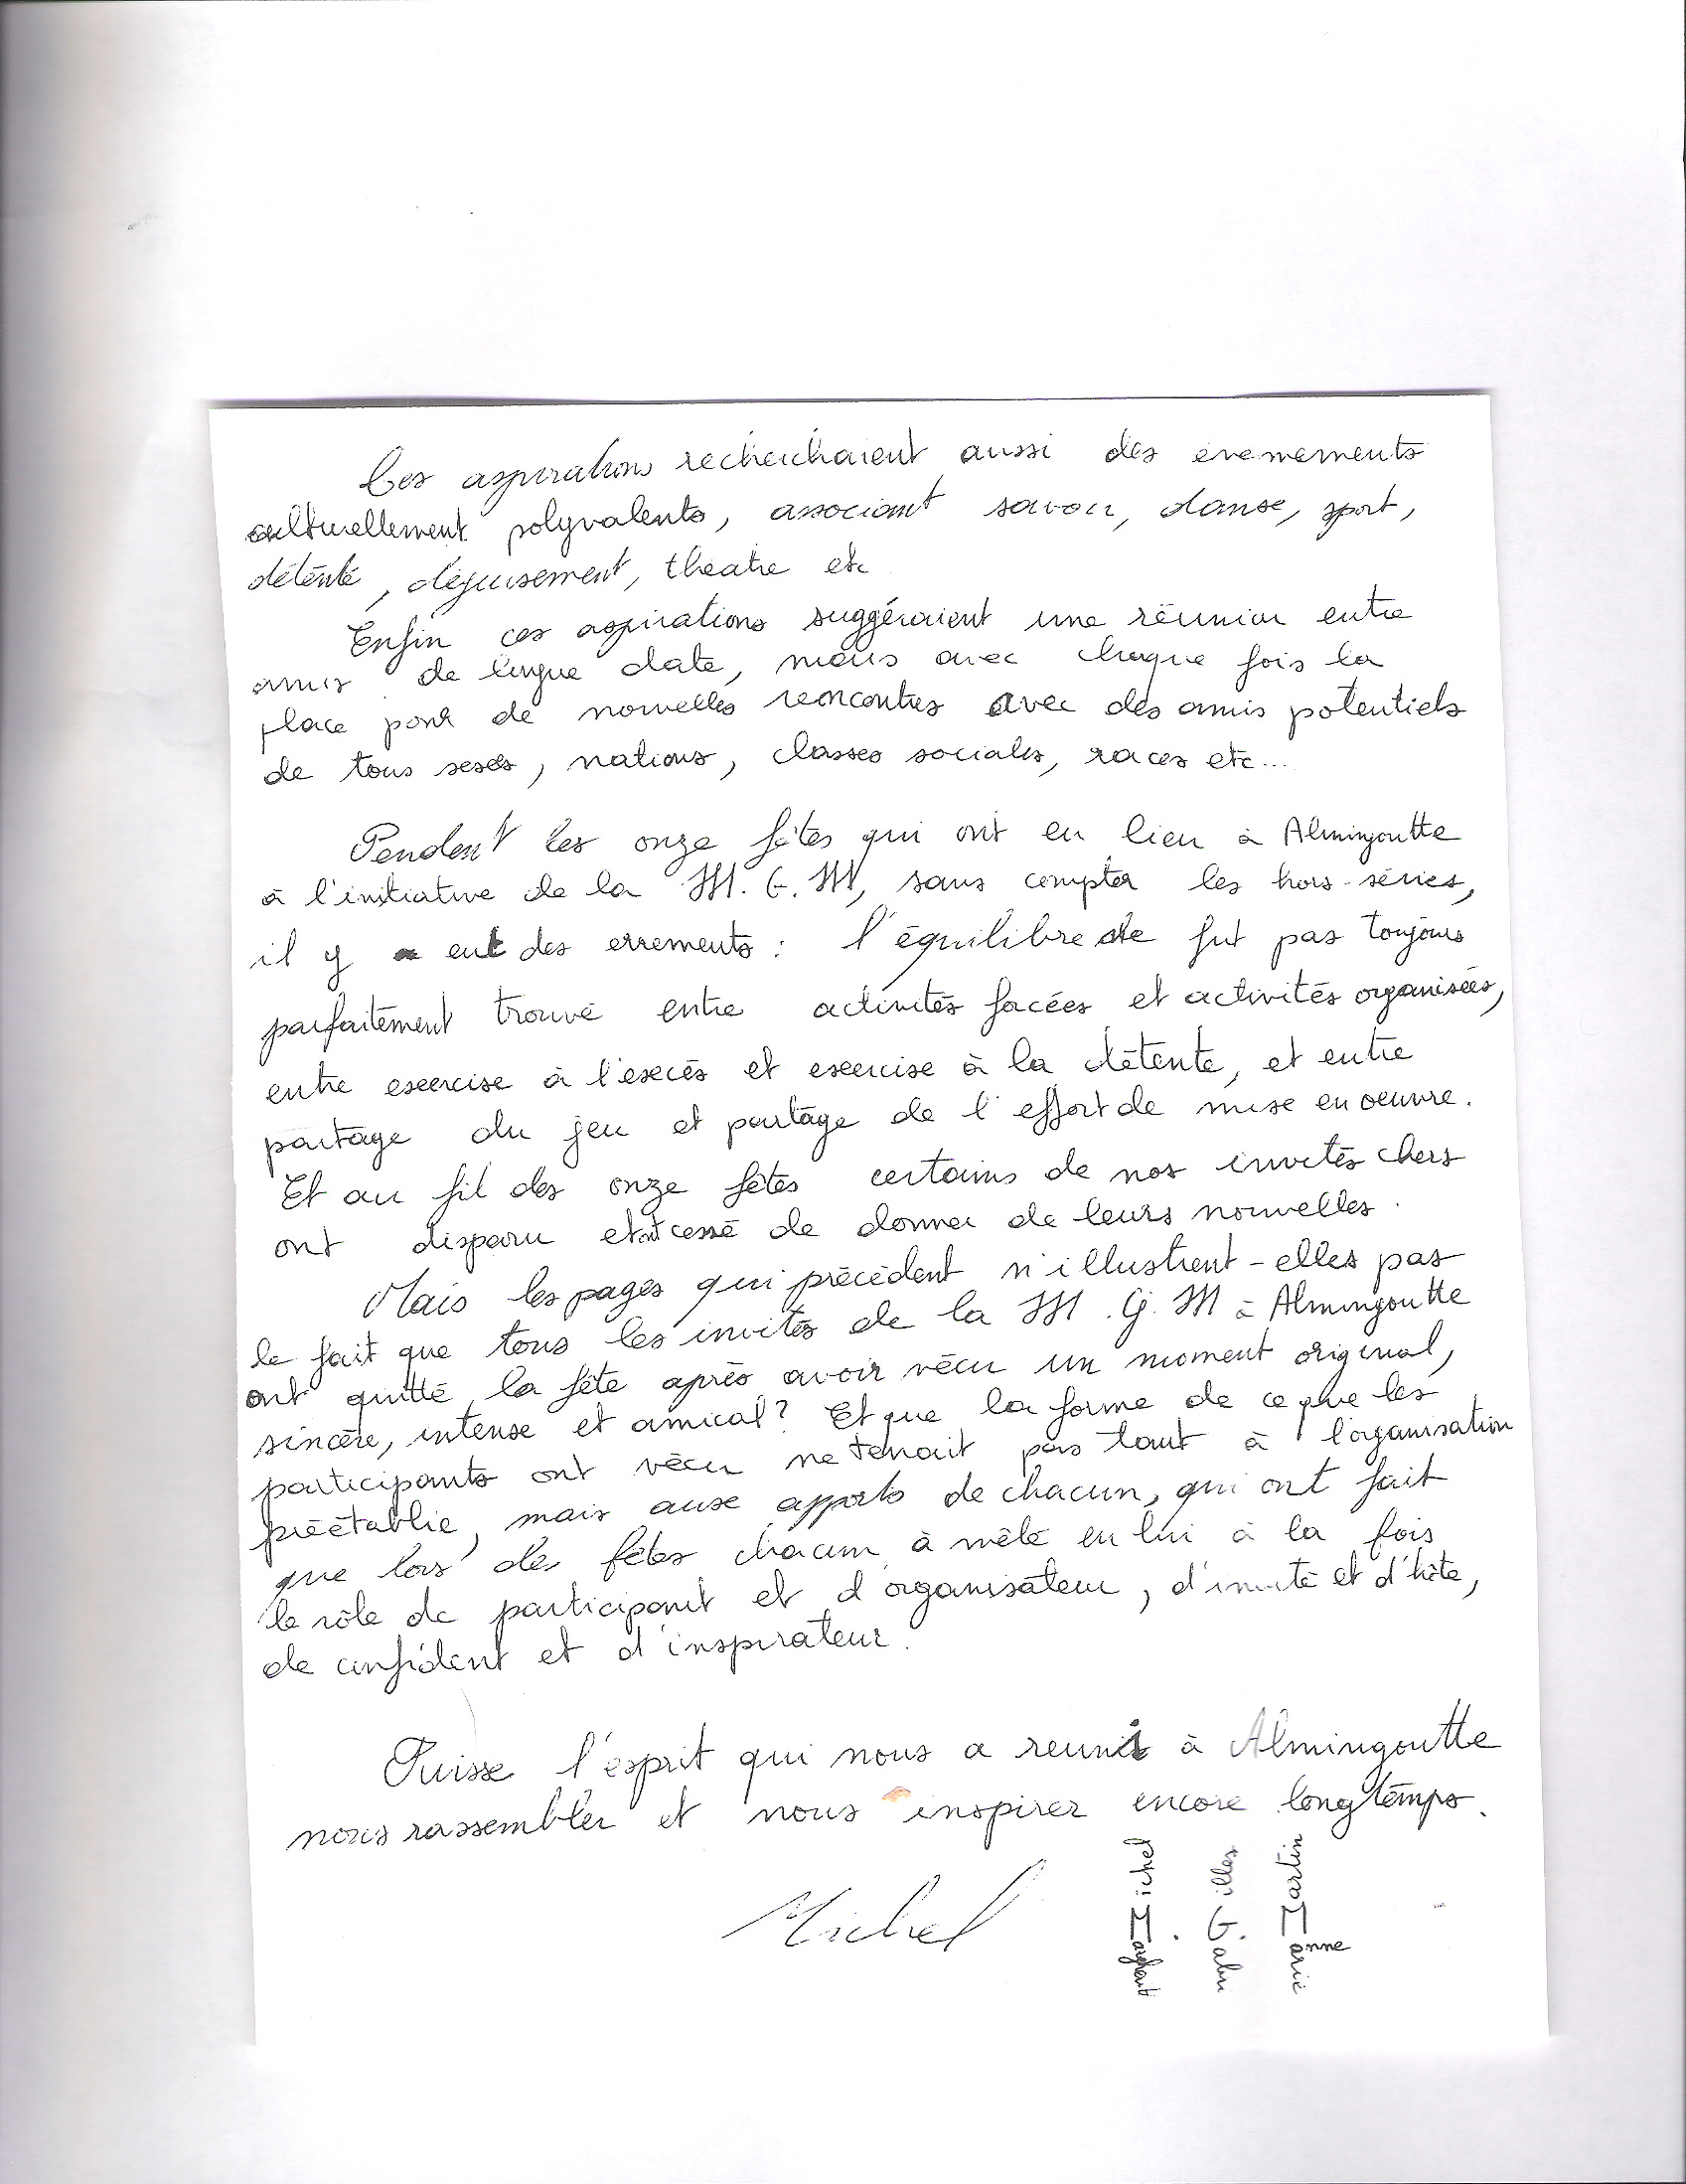 Ces aspirations recherchaient aussi des évenements
culturellement polyvalents, associant savoir, danse, sport,
détente, déguisement, theatre etc
Enfin ces aspirations suggéraient une réunion entre
amis de longue date, mais avec chaque fois la
place pour de nouvelles rencontres avec des amis potentiels
de tous sexes, nations, classes sociales, races etc...
Pendant les onze fêtes qui ont eu lieu à Almingoutte
à l'initiative de la M. G. M, sans compter les hors-séries,
il y eut des errements : l'équilibre ne fut pas toujours
parfaitement trouvé entre activités forcées et activités organisées,
entre exercise à l'excès et exercise à la détente, et entre
partage du jeu et partage de l'effort de mise en oeuvre.
Et au fil des onze fêtes certains de nos invités chers
ont disparu et ont cessé de donner de leurs nouvelles.
Mais les pages qui précédent n'illustrent-elles pas
le fait que tous les invités de la M. G. M à Almingoutte
ont quitté la fête après avoir vécu un moment original,
sincère, intense et amical? Et que la forme de ce que les
participants ont vécu ne tenait pas tant à l'organisation
préétablie, mais aux apports de chacun, qui ont fait
que lors des fêtes chacun à mêlé en lui à la fois
le rôle de participant et d'organisateur, d'invité et d'hôte,
de confident et d'inspirateur.
Puisse l'esprit qui nous a reunis à Almingoutte
nous rassembler et nous inspirer encore longtemps.
Michel
Michel Gilles Martin
M. G. M
Gabu Marie Anne